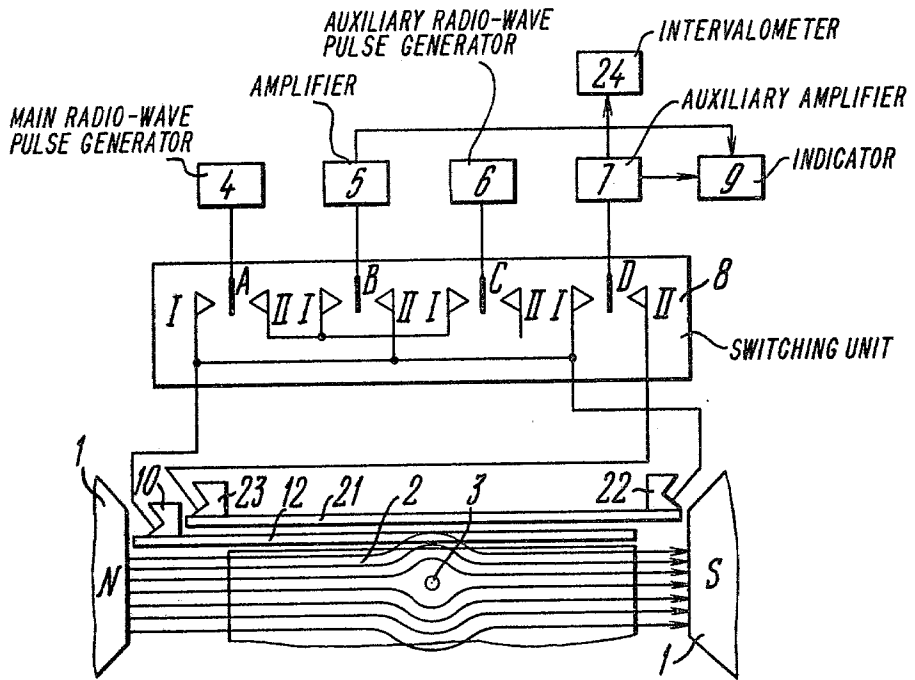 AUXILIARY RADIO-WAVE
PULSE GENERATOR
INTERVALOMETER
24
AMPLIFIER
AUXILIARY AMPLIFIER
MAIN RADIO-WAVE
PULSE GENERATOR
INDICATOR
4
5
6
7
9
A
B
C
D
8
I
II
I
II
I
II
I
II
SWITCHING UNIT
1
10
23
12
21
2
3
22
N
S
1